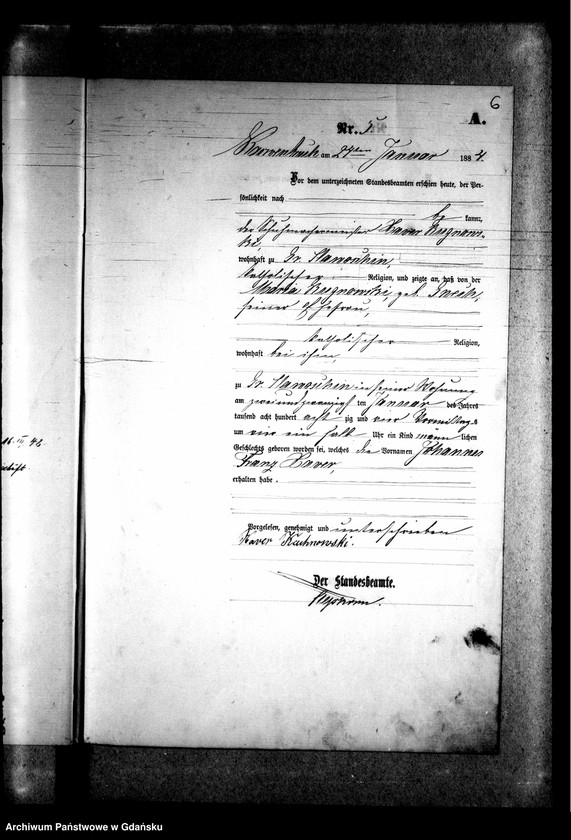 6
A.
Nr. 5
am 29ten Januar 1884.
Vor dem unterzeichneten Standesbeamten erschien heute, der Per-
sönlichkeit nach
kannt,
der Schuhmachermeister Xaver
ki,
wohnhaft zu Gr.
katholischer Religion, und zeigte an, daß von der
Maria geb.
seiner Ehefrau,
katholischer Religion,
wohnhaft bei ihm,
zu Gr. in seiner Wohnung
am zweiundzwanzigsten ten Januar des Jahrs
tausend acht hundert acht zig und vier Vormittags
um ein halb Uhr ein Kind männ lichen
Geschlechts geboren worden sei, welches die Vornamen Johannes
Franz Xaver,
erhalten habe.
Vorgelesen, genehmigt und unterschrieben
Xaver Kuchnowski.
Der Standesbeamte.
16. III 42
Archiwum Państwowe w Gdańsku